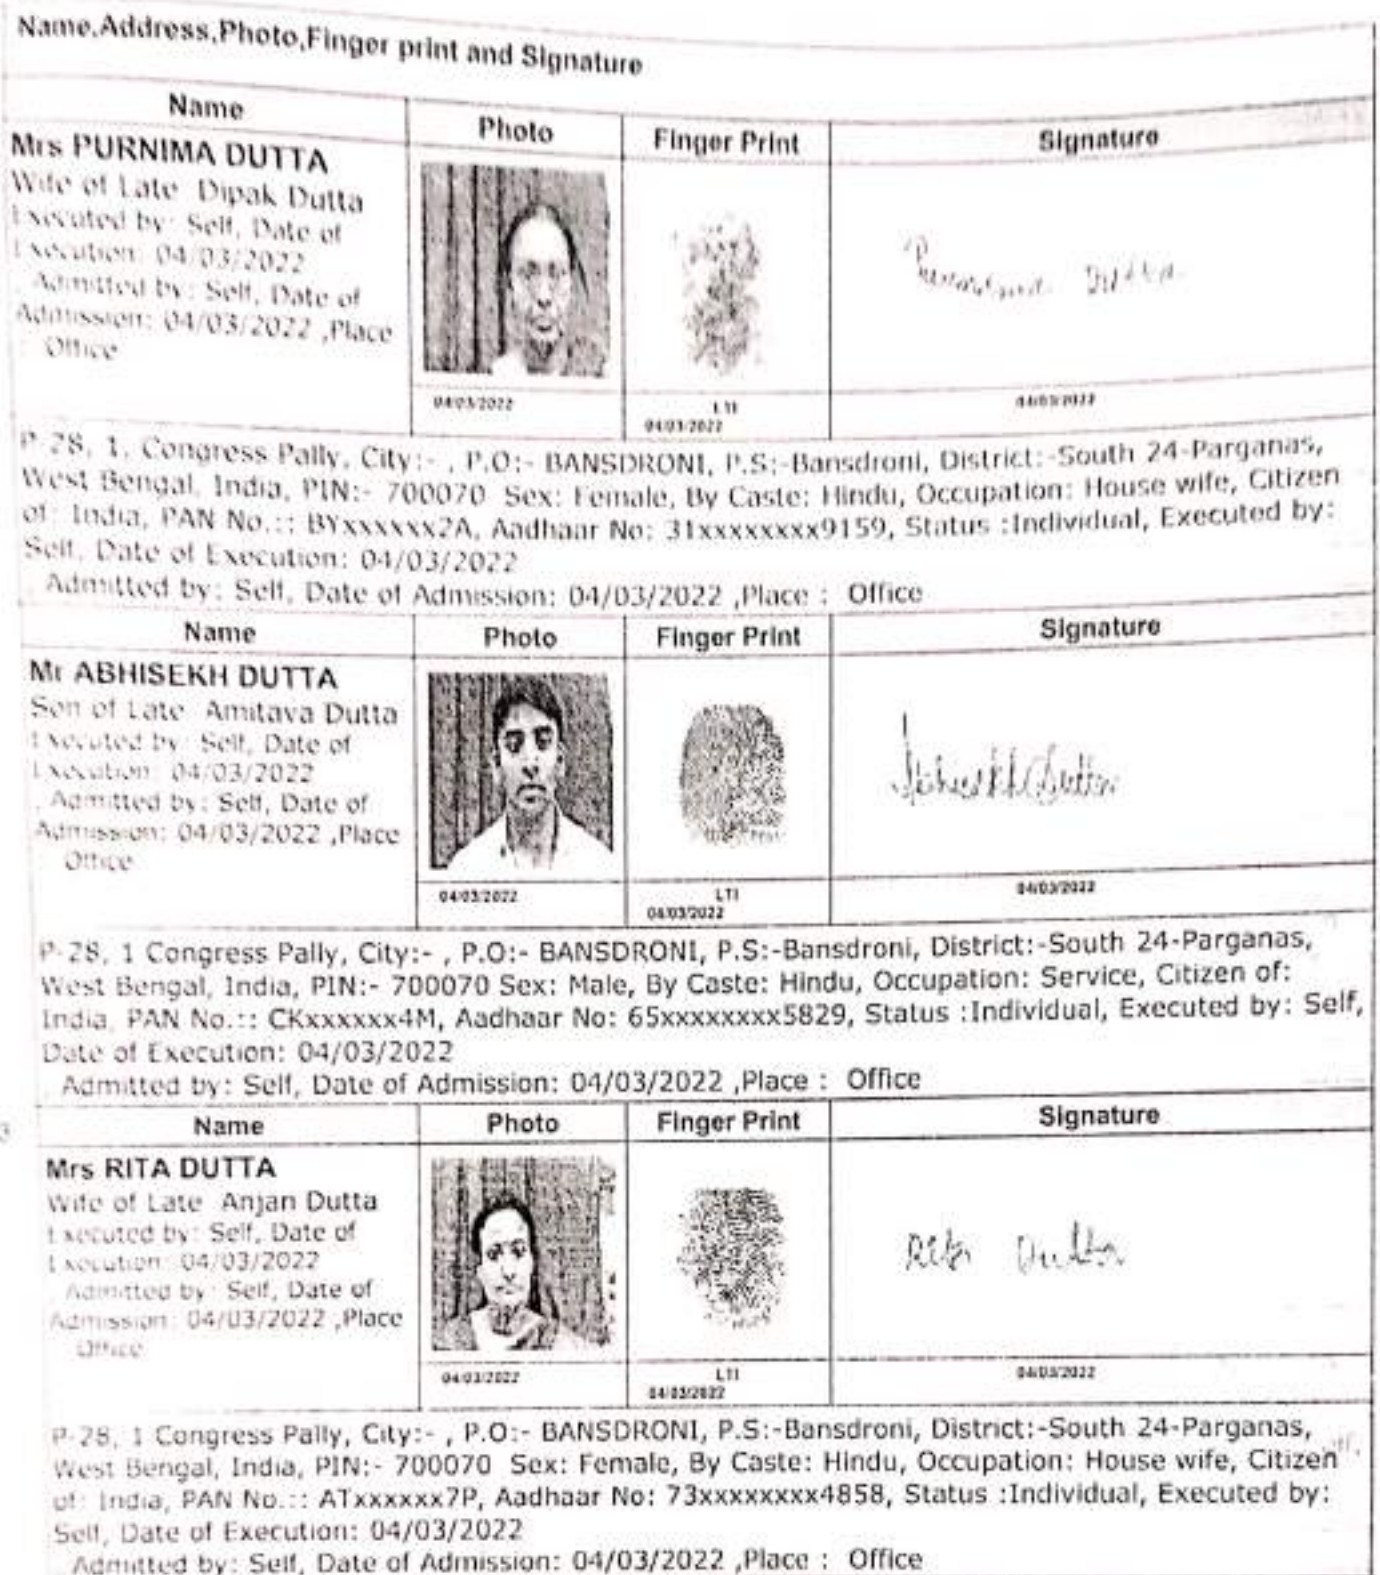 Name,Address,Photo,Finger print and Signature
Name Photo Finger Print Signature
Mrs PURNIMA DUTTA
Wife of Late Dipak Dutta
Executed by: Self, Date of
Execution: 04/03/2022
, Admitted by: Self, Date of
Admission: 04/03/2022 ,Place
: Office
Dutta
04/03/2022 LTI 04/03/2022
04/03/2022
P-28, 1, Congress Pally, City:- , P.O:- BANSDRONI, P.S:-Bansdroni, District:-South 24-Parganas,
West Bengal, India, PIN:- 700070 Sex: Female, By Caste: Hindu, Occupation: House wife, Citizen
of: India, PAN No.:: BYxxxxxx2A, Aadhaar No: 31xxxxxxxx9159, Status :Individual, Executed by:
Self, Date of Execution: 04/03/2022
, Admitted by: Self, Date of Admission: 04/03/2022 ,Place : Office
Name Photo Finger Print Signature
Mr ABHISEKH DUTTA
Son of Late Amitava Dutta
Executed by: Self, Date of
Execution: 04/03/2022
, Admitted by: Self, Date of
Admission: 04/03/2022 ,Place
: Office
Abhisekh Dutta
04/03/2022 LTI 04/03/2022
04/03/2022
P-28, 1 Congress Pally, City:- , P.O:- BANSDRONI, P.S:-Bansdroni, District:-South 24-Parganas,
West Bengal, India, PIN:- 700070 Sex: Male, By Caste: Hindu, Occupation: Service, Citizen of:
India, PAN No.:: CKxxxxxx4M, Aadhaar No: 65xxxxxxxx5829, Status :Individual, Executed by: Self,
Date of Execution: 04/03/2022
, Admitted by: Self, Date of Admission: 04/03/2022 ,Place : Office
3 Name Photo Finger Print Signature
Mrs RITA DUTTA
Wife of Late Anjan Dutta
Executed by: Self, Date of
Execution: 04/03/2022
, Admitted by: Self, Date of
Admission: 04/03/2022 ,Place
: Office
Rita Dutta
04/03/2022 LTI 04/03/2022
04/03/2022
P-28, 1 Congress Pally, City:- , P.O:- BANSDRONI, P.S:-Bansdroni, District:-South 24-Parganas,
West Bengal, India, PIN:- 700070 Sex: Female, By Caste: Hindu, Occupation: House wife, Citizen
of: India, PAN No.:: ATxxxxxx7P, Aadhaar No: 73xxxxxxxx4858, Status :Individual, Executed by:
Self, Date of Execution: 04/03/2022
, Admitted by: Self, Date of Admission: 04/03/2022 ,Place : Office